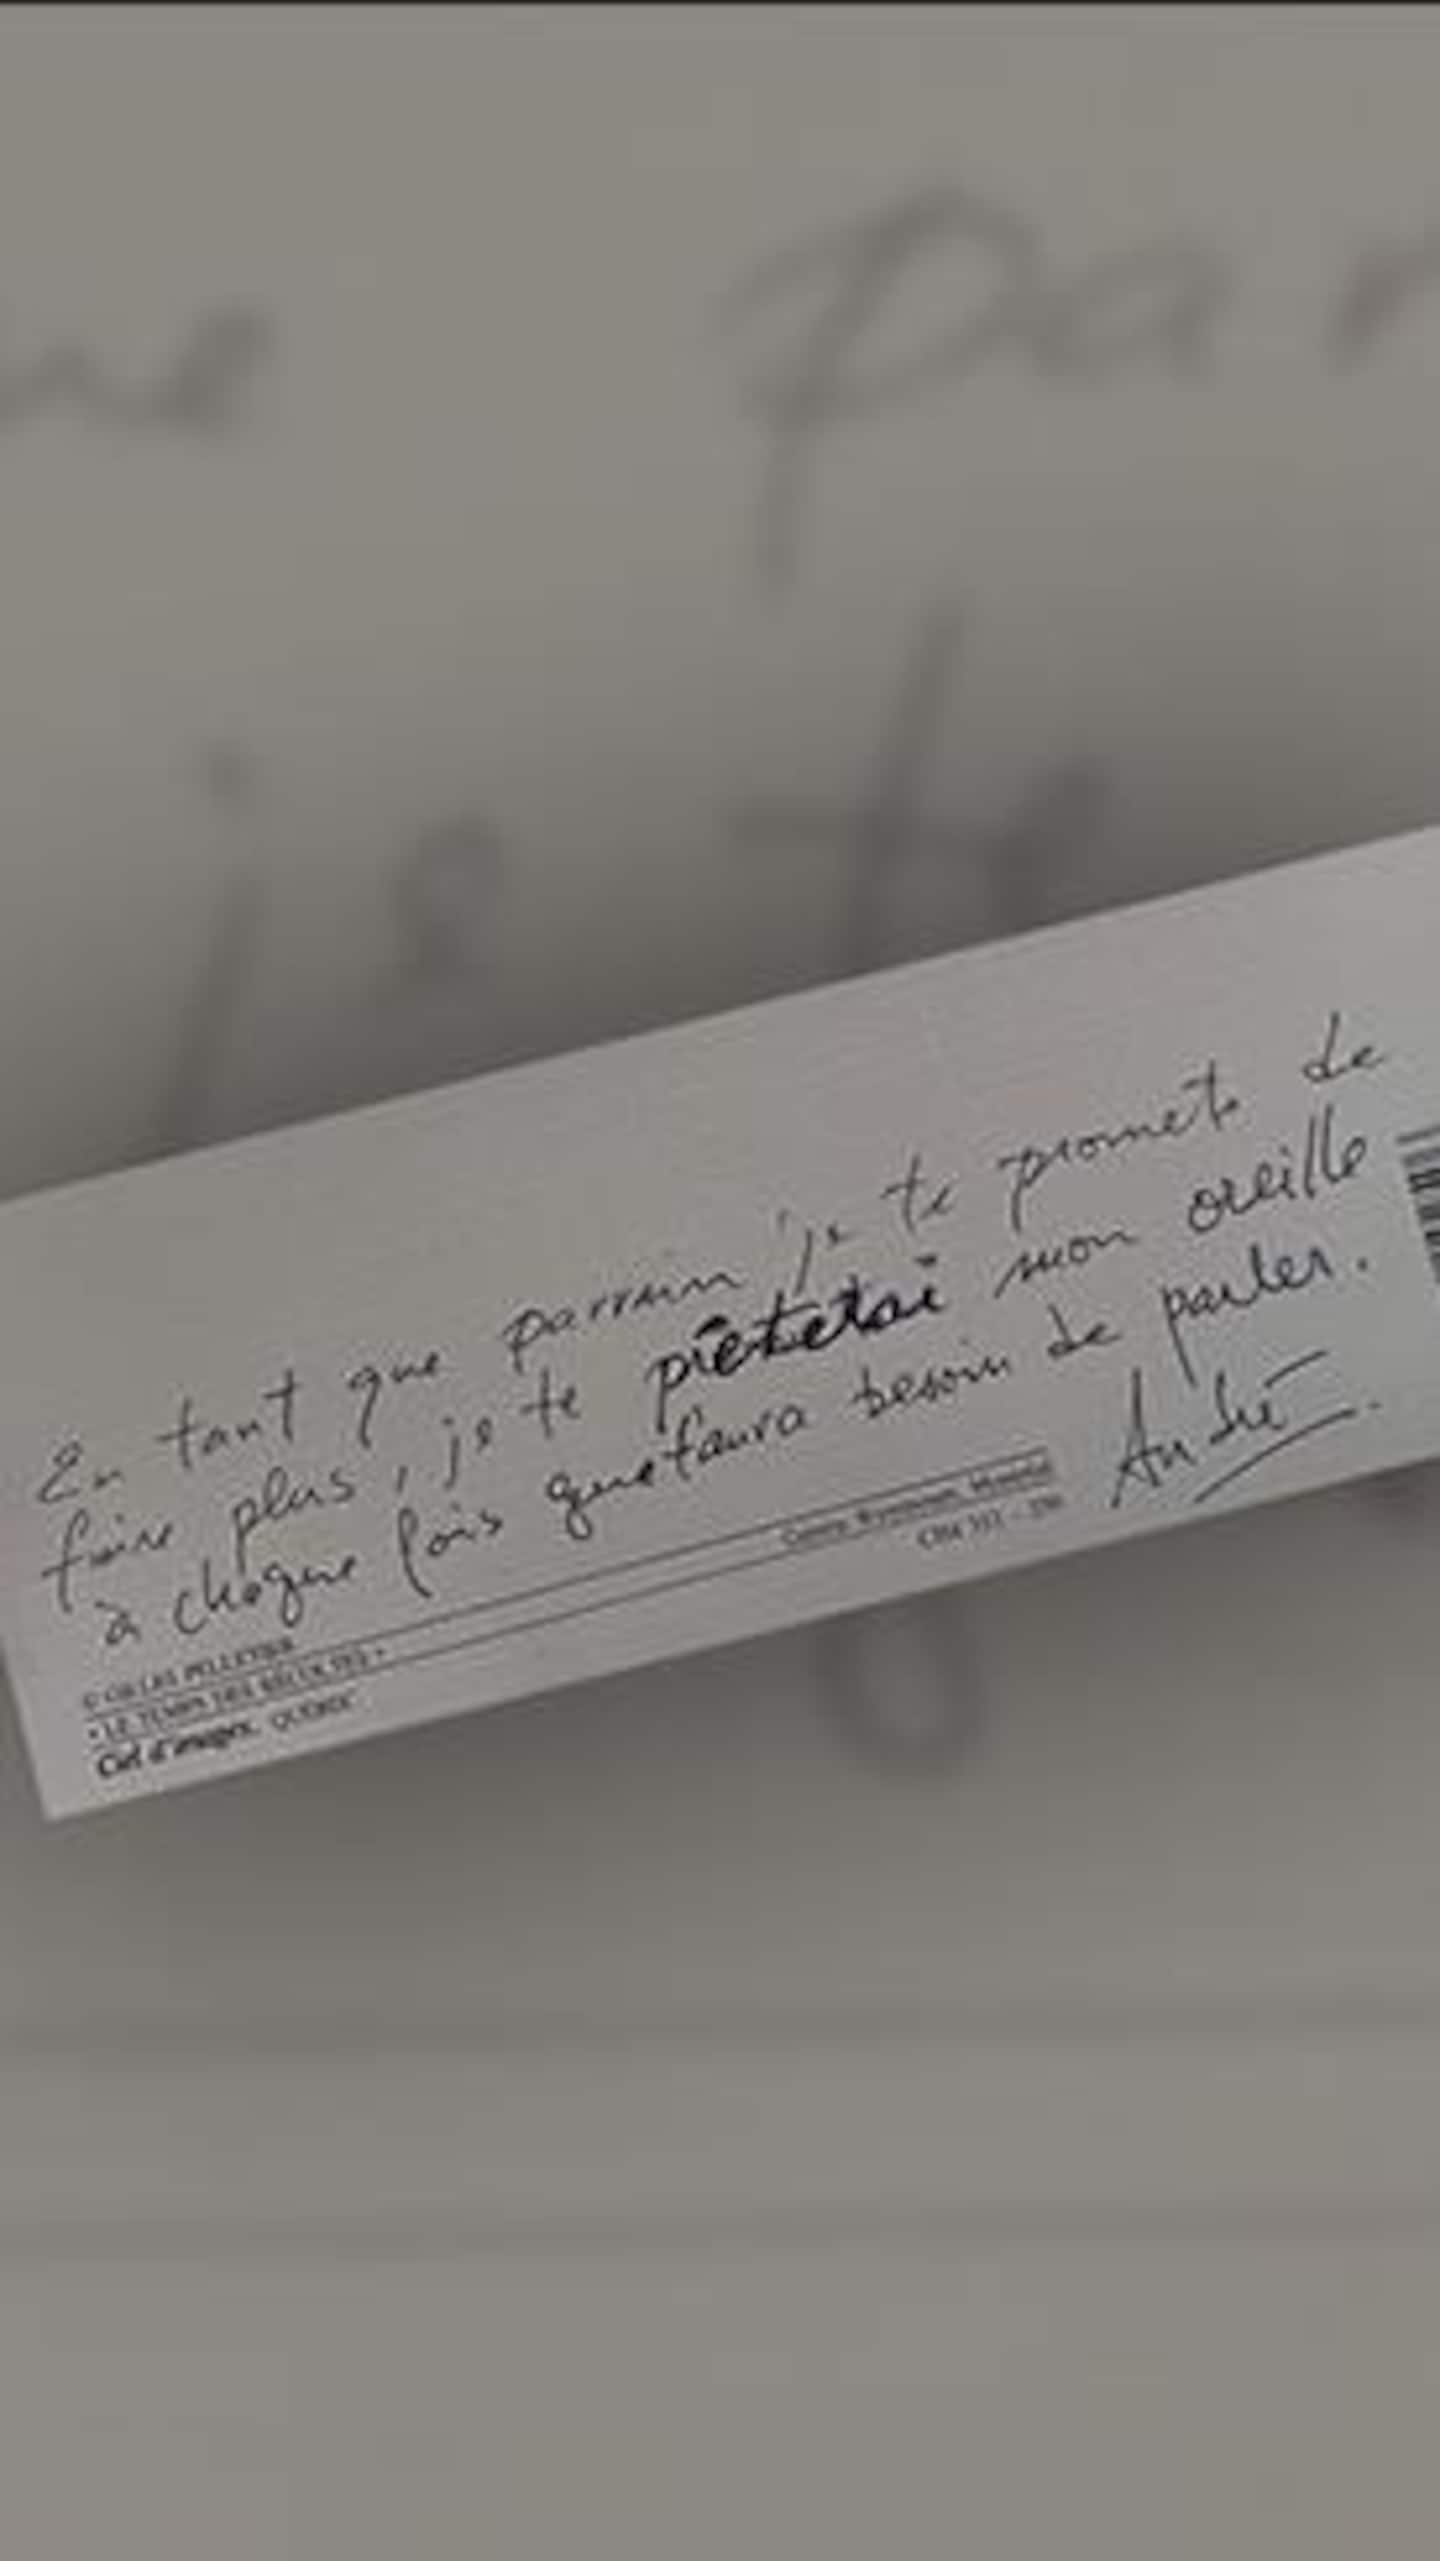 En tant que parrain je te promets de
faire plus, je te prêterai mon oreille
à chaque fois que t'aura besoin de parler.
André
© GILLES PELLETIER
• LE TEMPS DES
Ciel d'images, QUÉBEC